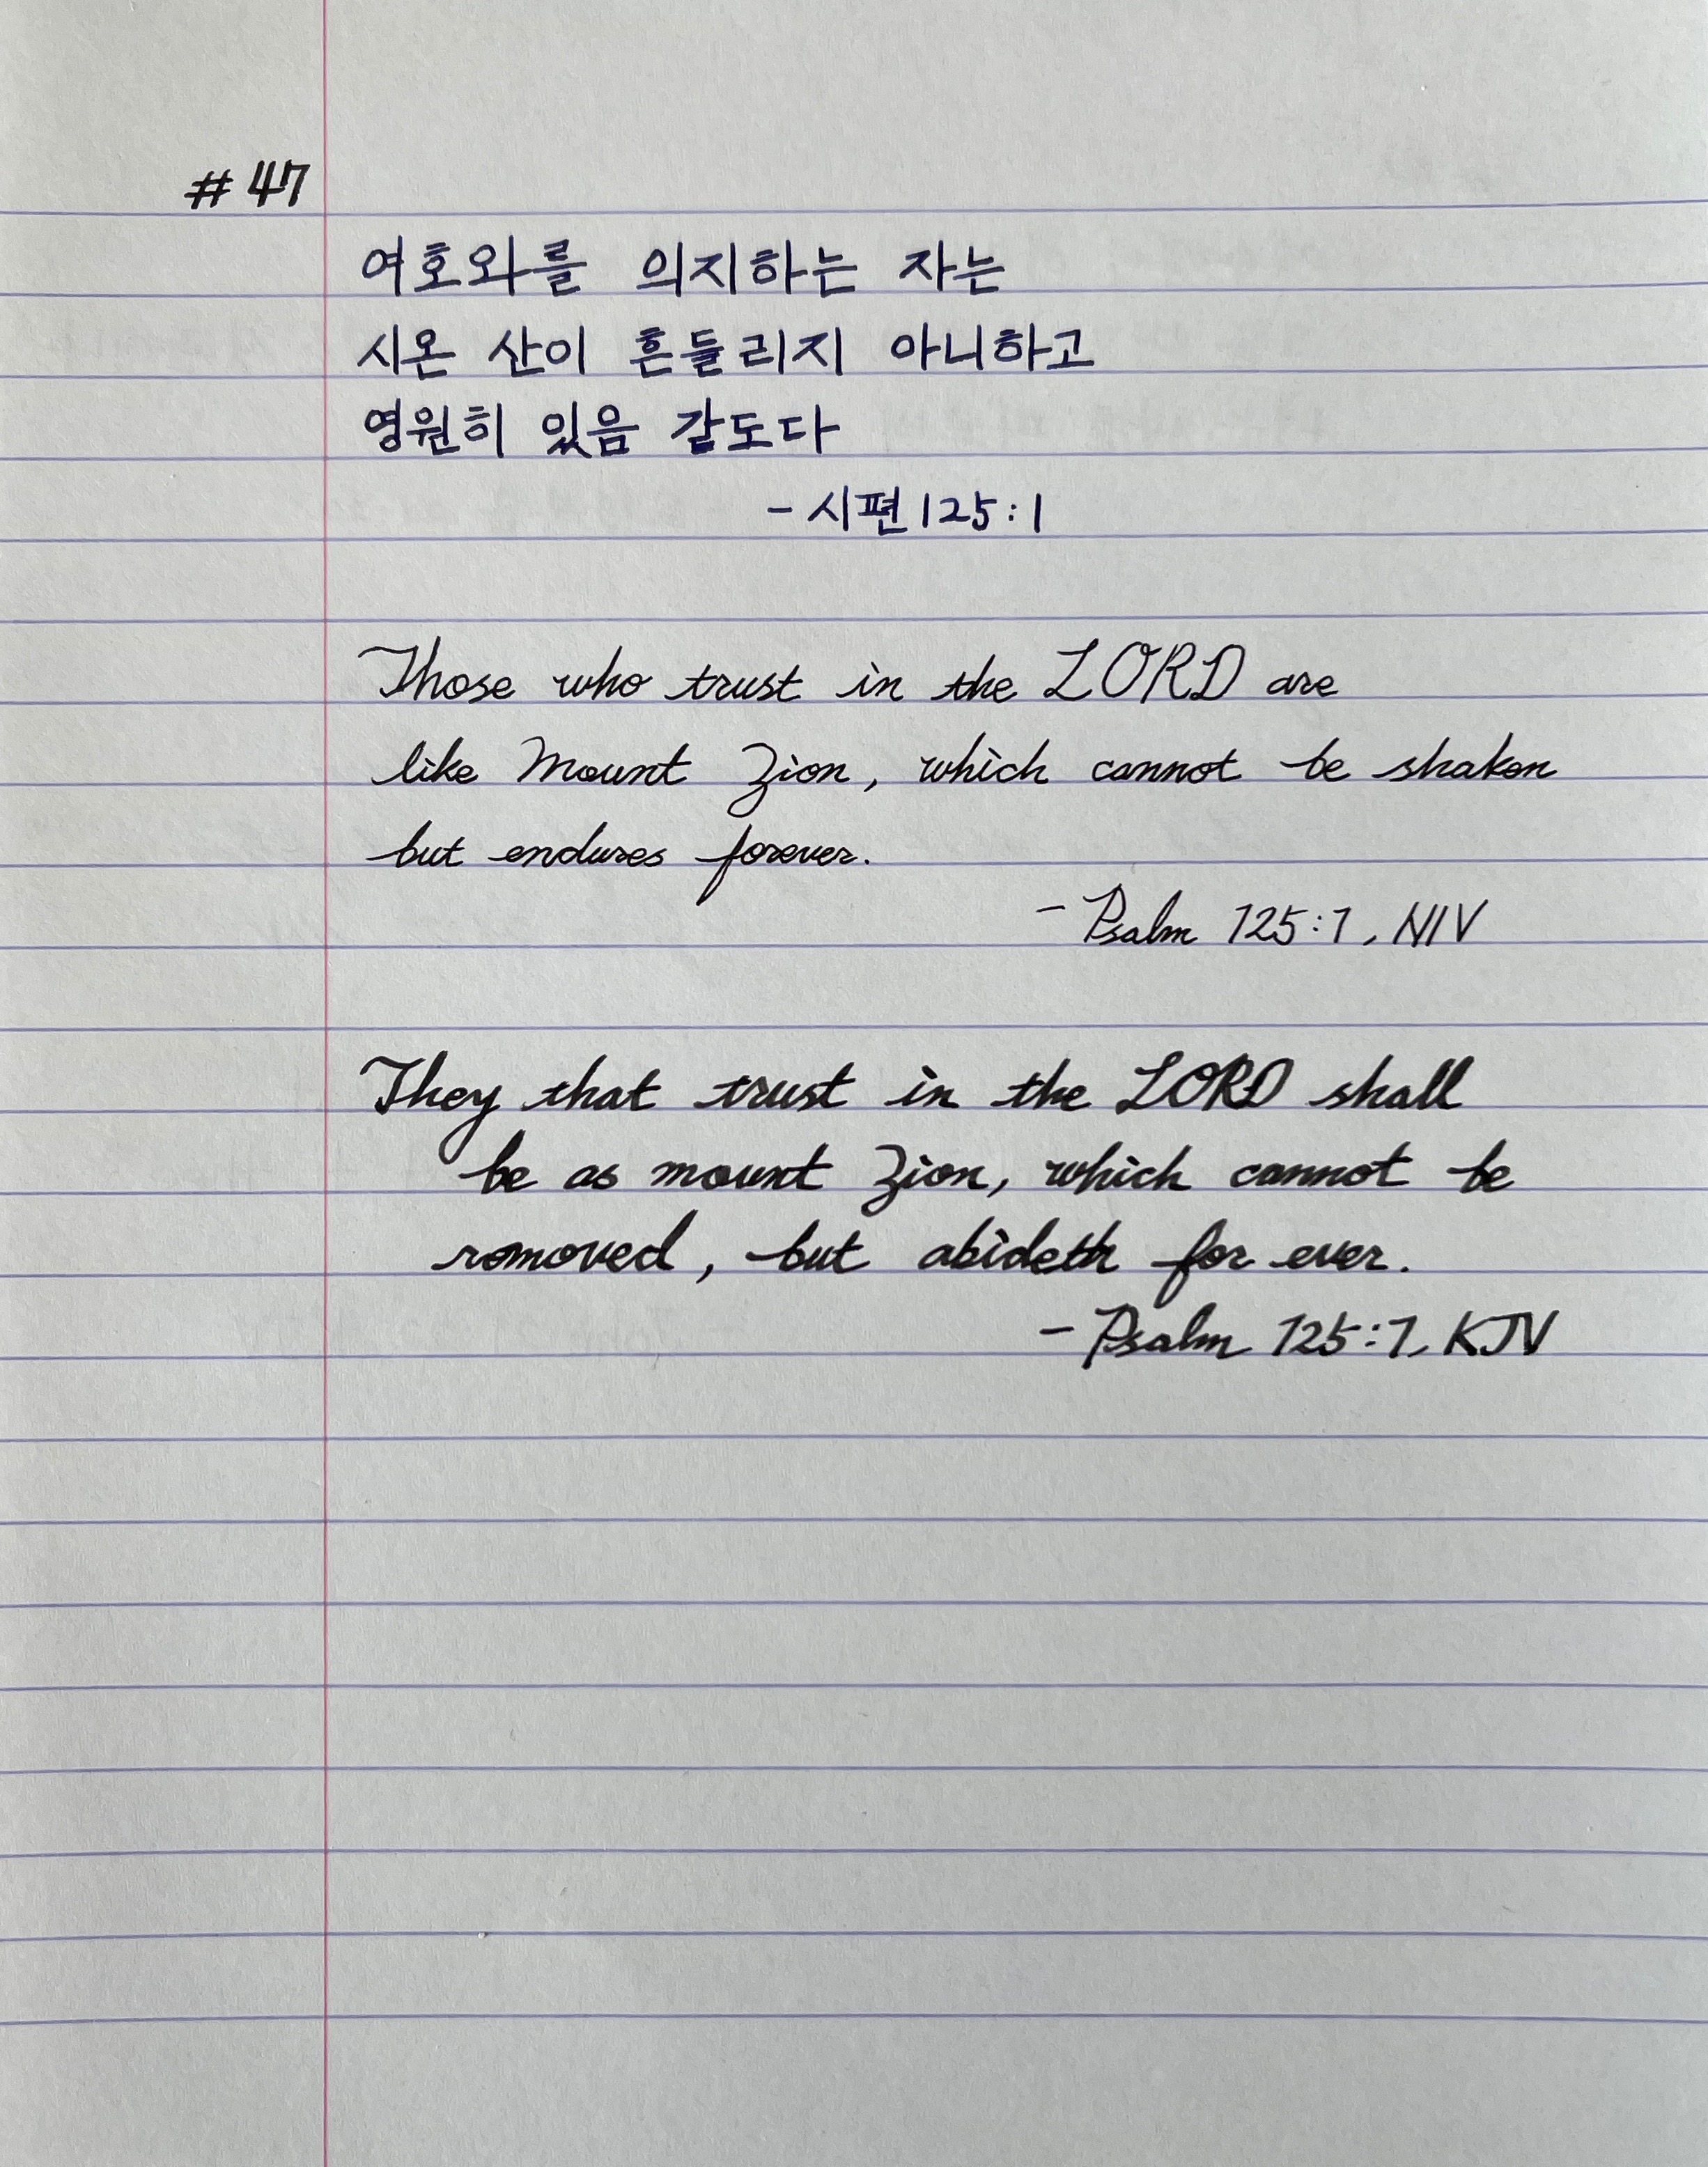 # 47
여호와를 의지하는 자는
시온 산이 흔들리지 아니하고
영원히 있음 같도다
- 시편 125:1
Those who trust in the LORD are
like Mount Zion, which cannot be shaken
but endures forever.
- Psalm 125:1, NIV
They that trust in the LORD shall
be as mount Zion, which cannot be
removed, but abideth for ever.
- Psalm 125:1, KJV